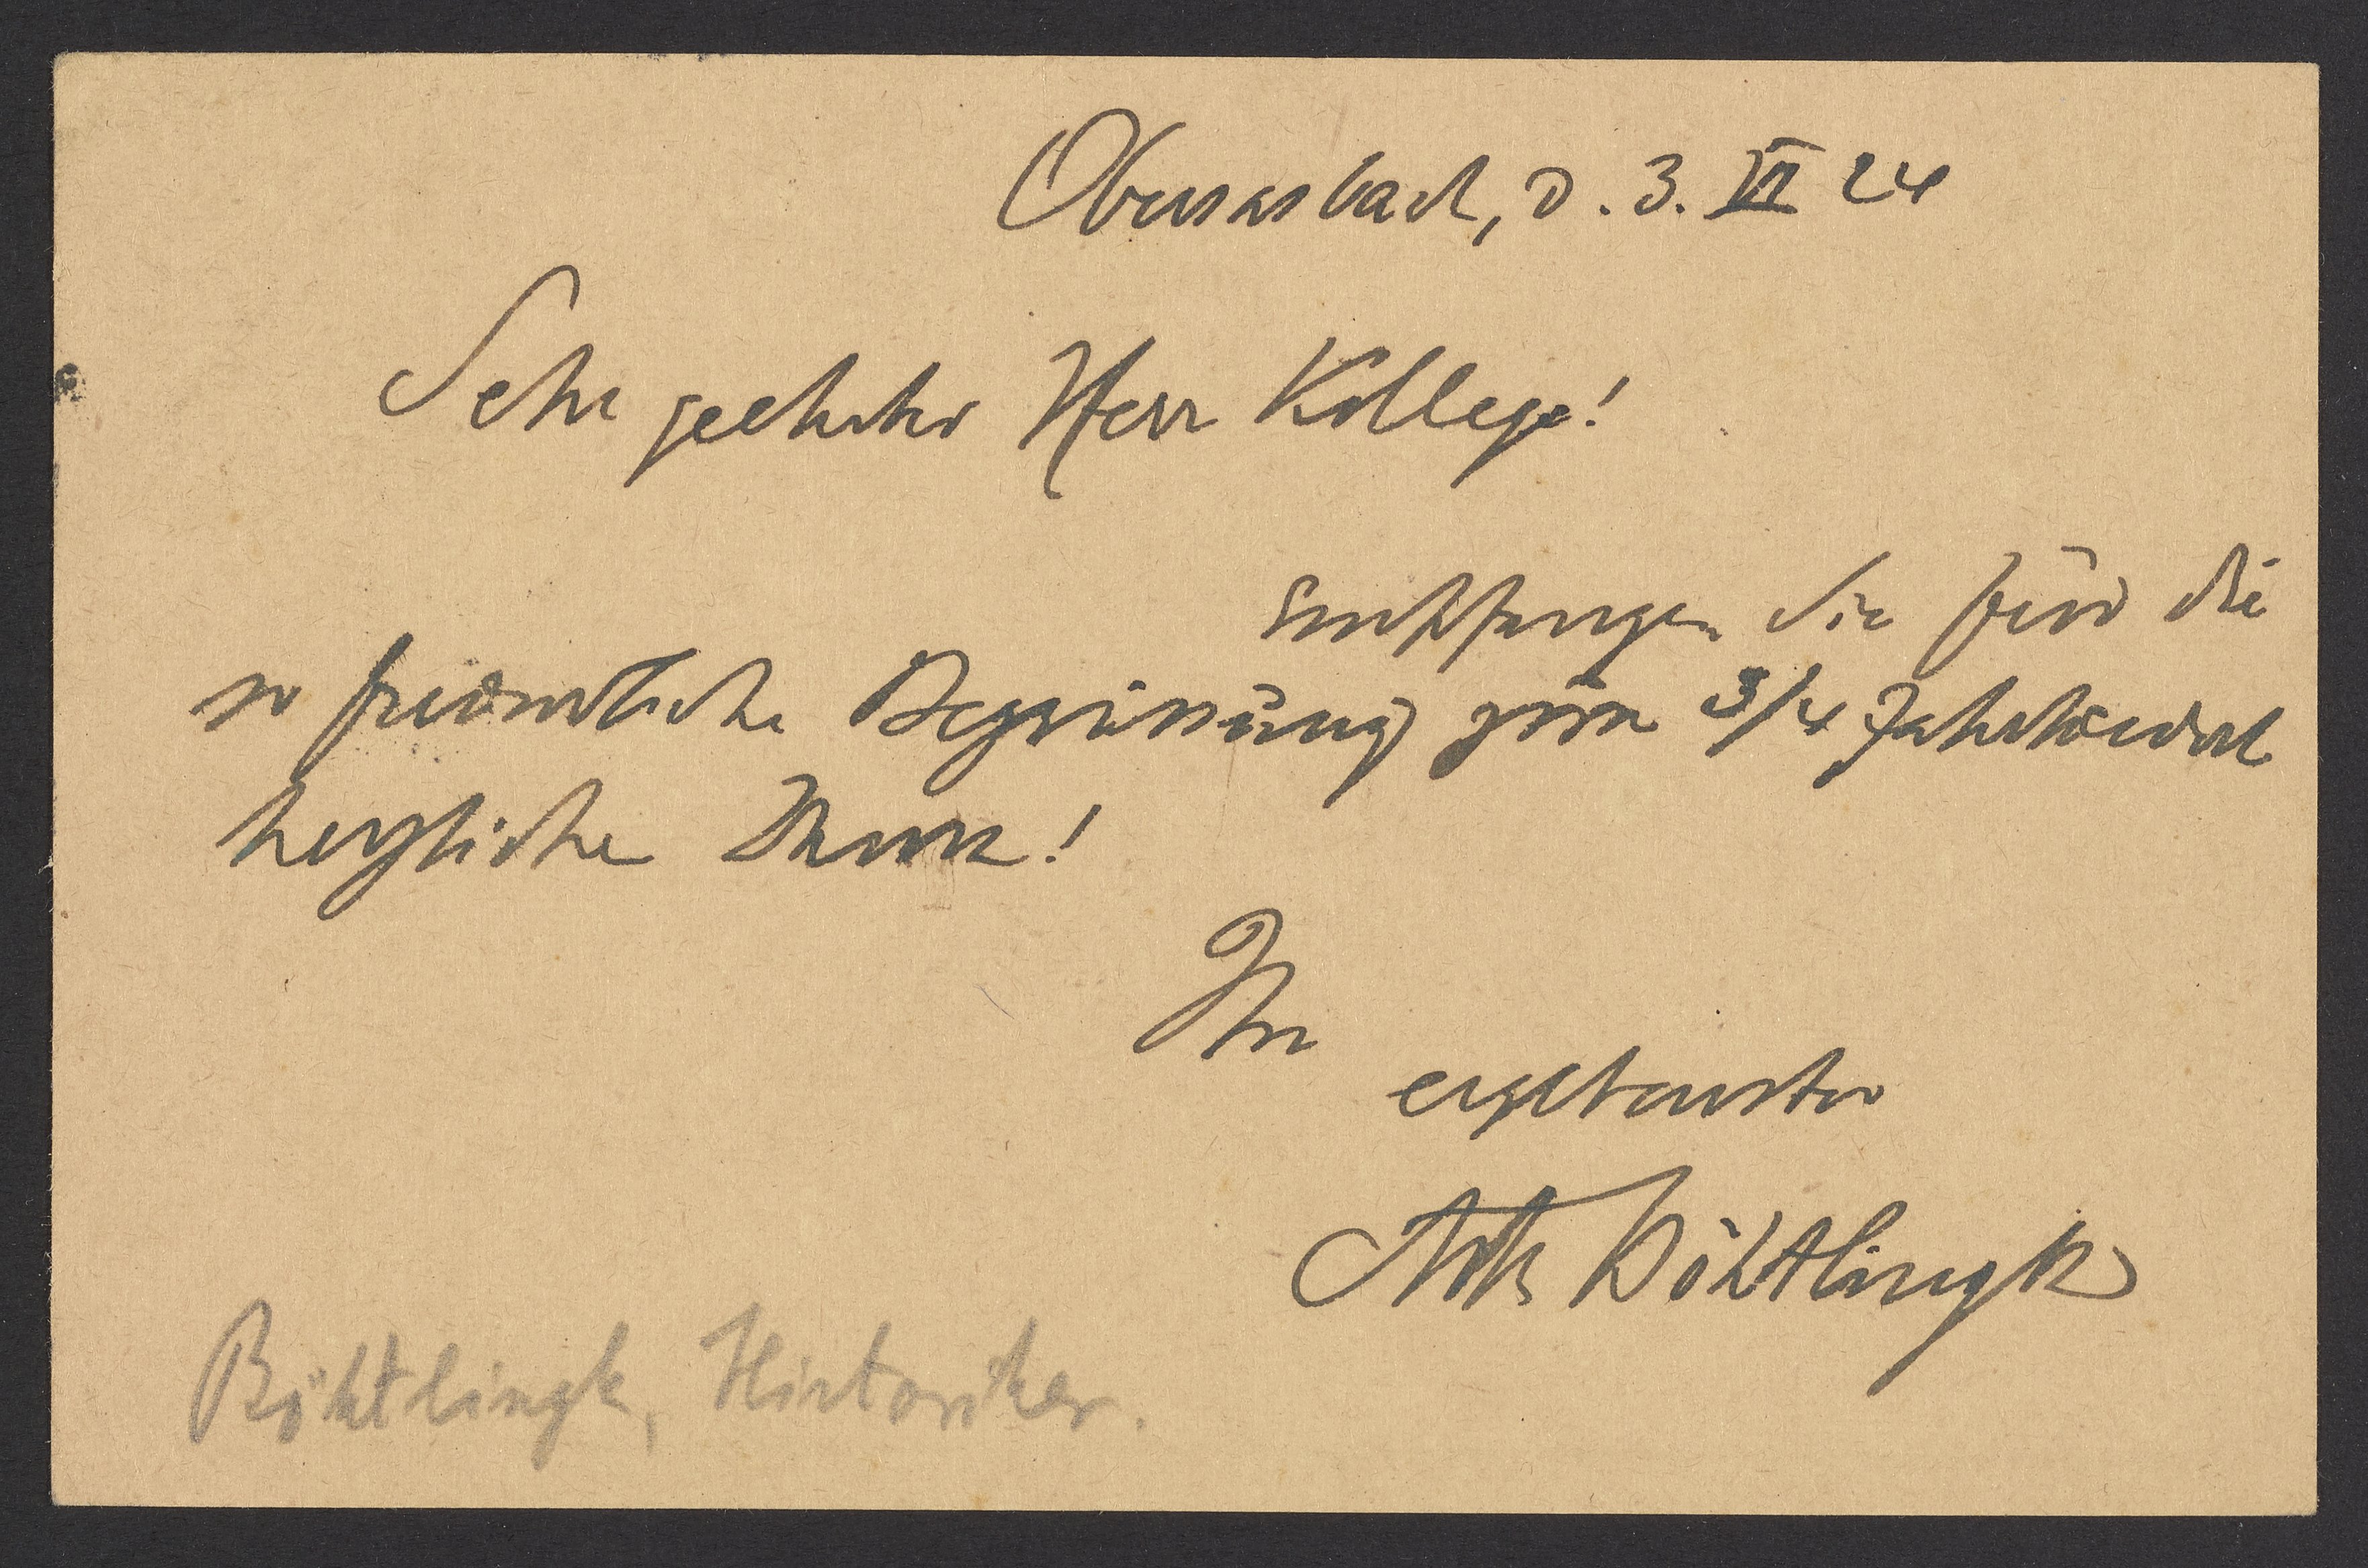 Obersasbach, d. 3. VI 24
Sehr geehrter Herr Kollege!
Empfangen Sie für die
so freundliche Begrüssung zum 3/4 Jahrhundert
herzlichen Dank!
Ihr
ergebenster
Arth Böhtlingk
Böhtlingk, Historiker.